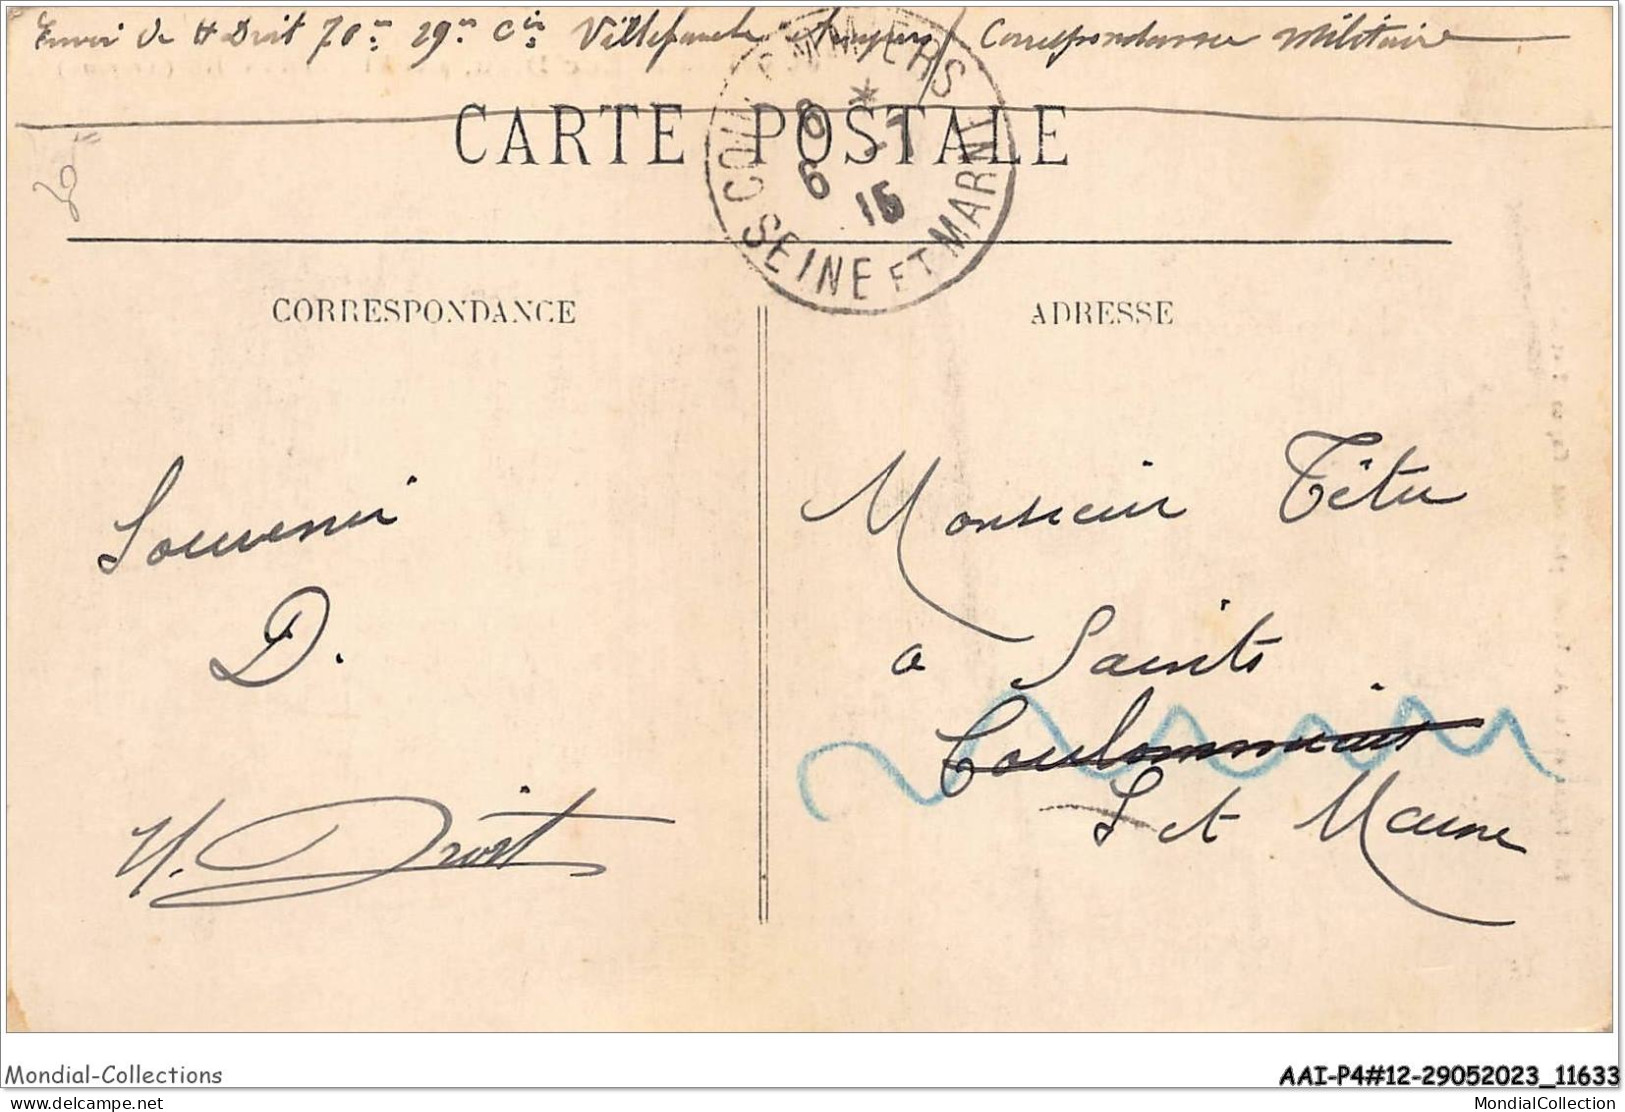 Envoi de H Droit 70me 29me Cie Villefranche Aveyron / Correspondance Militaire
CARTE POSTALE
COULOMMIERS
8 * 6 -7 15
SEINE ET MARNE
CORRESPONDANCE
ADRESSE
Souvenir
D.
H. Droit
Monsieur Têtu
a Saints
Coulommiers
S et Marne
Mondial-Collections
AAI-P4#12-29052023_11633
delcampe.net
MondialCollection